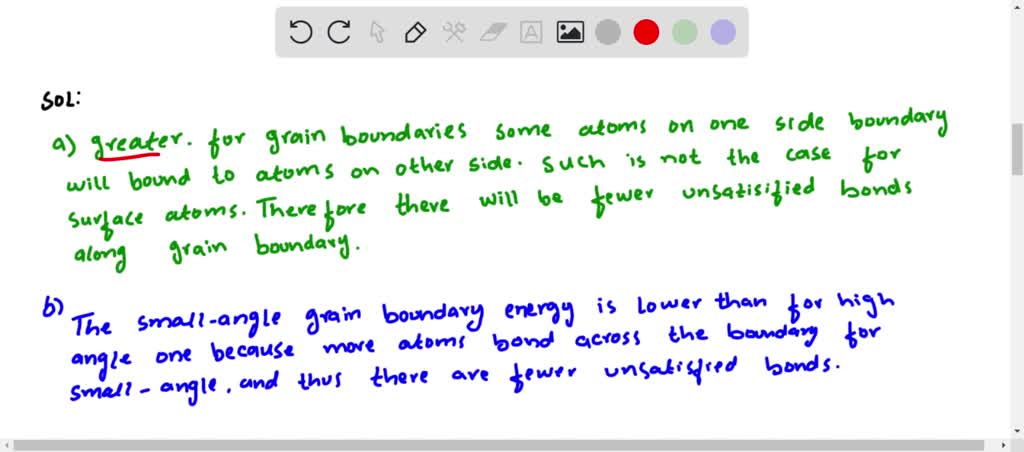 SOL:
a) greater. for grain boundaries some atoms on one side boundary
will bound to atoms on other side. Such is not the case for
surface atoms. Therefore there will be fewer unsatisified bonds
along grain boundary.
b) The small-angle grain boundary energy is lower than for high
angle one because more atoms bond across the boundary for
small-angle, and thus there are fewer unsatisfied bonds.